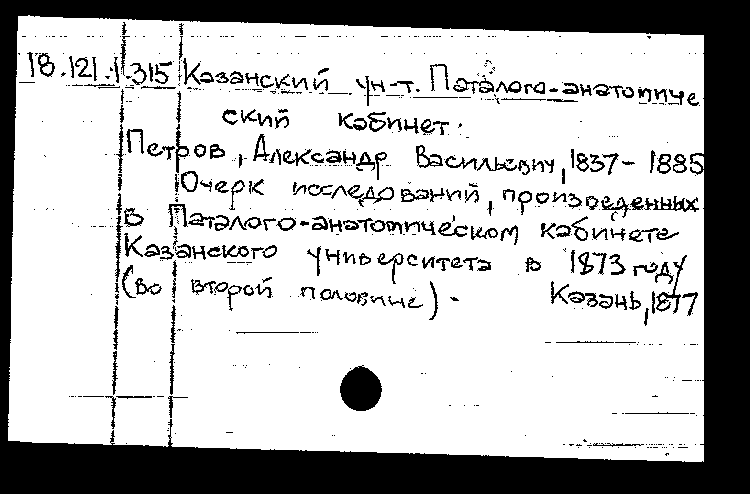 18.121.1.315 Казанский ун-т. Паталого-анатомиче
ский кабинет.
Петров, Александр Васильевич, 1837 - 1885
Очерк исследований, произведенных
в Паталого-анатомическом кабинете
Казанского университета в 1873 году
(во второй половине). Казань, 1877